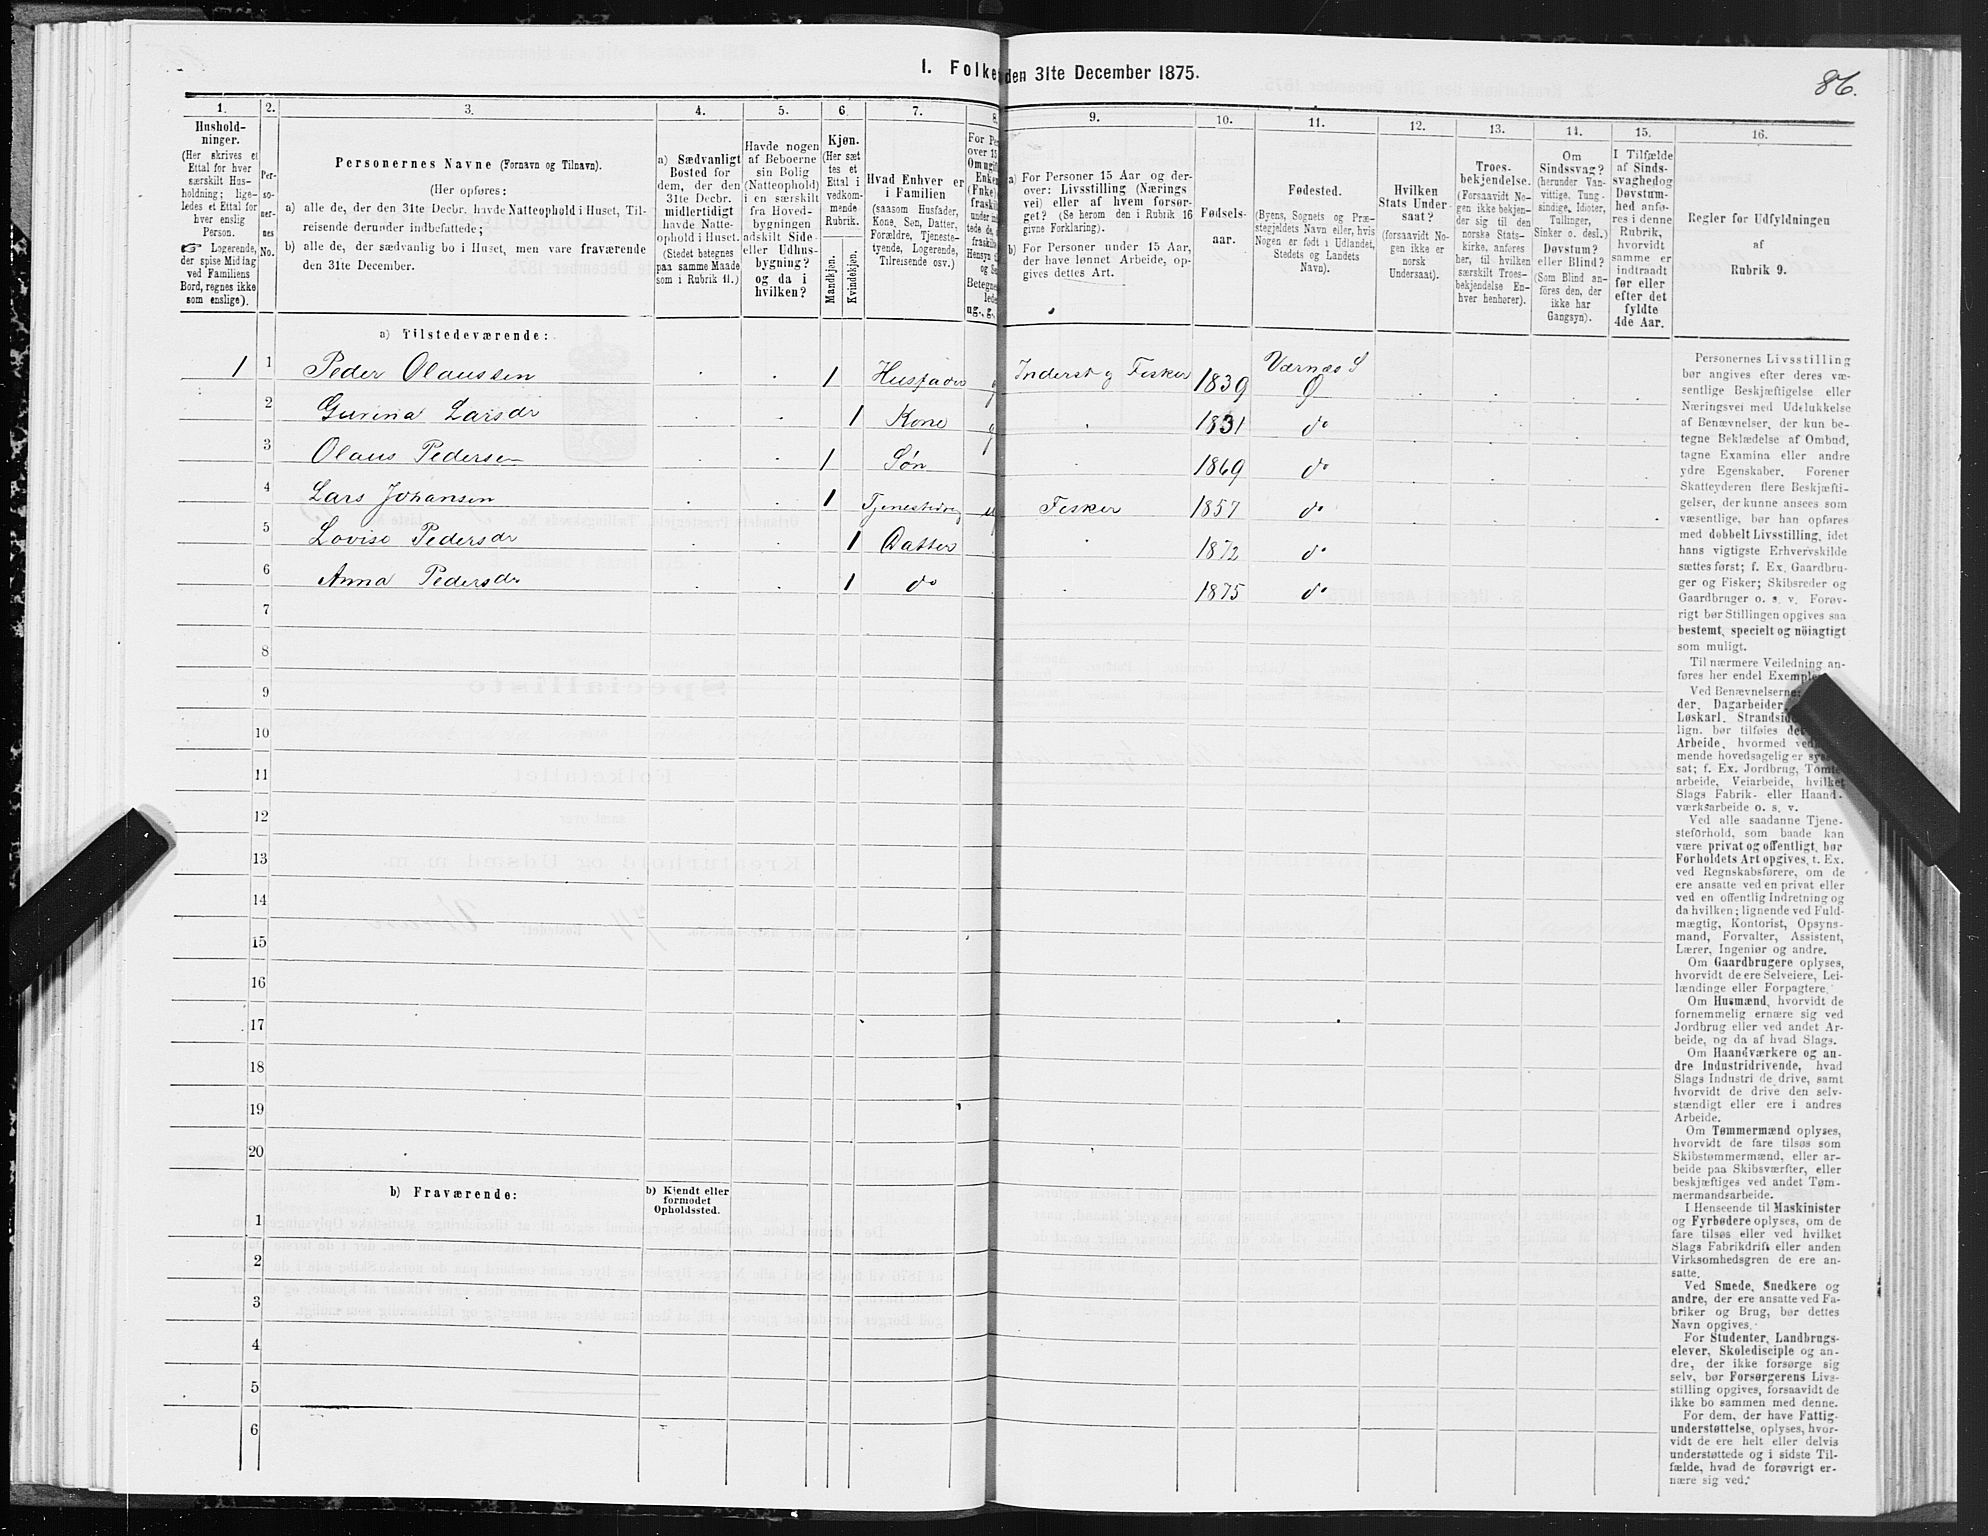 1. Folke den 31te December 1875.
86.
1. 2. 3. 4. 5. 6. 7. 8. 9. 10. 11. 12. 13. 14. 15. 16.
Hushold-
ninger.
(Her skrives et
Ettal for hver
særskilt Hus-
holdning; lige-
ledes et Ettal for
hver enslig
Person.
☞ Logerende,
der spise Middag
ved Familiens
Bord, regnes ikke
som enslige).
Per-
so-
ner-
nes
No.
Personernes Navne (Fornavn og Tilnavn).
(Her opføres:
a) alle de, der den 31te Decbr. havde Natteophold i Huset, Til-
reisende derunder indbefattede;
b) alle de, der sædvanlig bo i Huset, men vare fraværende
den 31te December.
a) Sædvanligt
Bosted for
dem, der den
31te Decbr.
midlertidigt
havde Natte-
ophold i Huset.
(Stedet betegnes
paa samme Maade
som i Rubrik 11.)
Havde nogen
af Beboerne
sin Bolig
(Natteophold)
i en særskilt
fra Hoved-
bygningen
adskilt Side-
eller Udhus-
bygning?
og da i
hvilken?
Kjøn.
(Her sæt
tes et
Ettal i
vedkom-
mende
Rubrik.
Mandkjøn.
Kvindekjøn.
Hvad Enhver er
i Familien
(saasom Husfader,
Kone, Søn, Datter,
Forældre, Tjeneste-
tyende, Logerende,
Tilreisende osv.)
For Pe
over 15
Om ugift
Enken
(Fnke)
fraskilt
under ind
tede de,
fraskilt
Hensyn t
og Se
Betegne
lede
ug., g.,
a) For Personer 15 Aar og der-
over: Livsstilling (Nærings
vei) eller af hvem forsør-
get? (Se herom den i Rubrik 16
givne Forklaring).
b) For Personer under 15 Aar,
der have lønnet Arbeide, op-
gives dettes Art.
Fødsels-
aar.
Fødested.
(Byens, Sognets og Præ-
stegjeldets Navn eller, hvis
Nogen er født i Udlandet,
Stedets og Landets
Navn).
Hvilken
Stats Under-
saat?
(forsaavidt No-
gen ikke er
norsk
Undersaat).
Troes-
bekjendelse.
(Forsaavidt No-
gen ikke bekjen-
der sig til den
norske Stats-
kirke, anføres
her, til hvilken
særskilt Troes-
bekjendelse En-
hver henhører).
Om
Sindssvag?
(herunder Van-
vittige, Tung-
sindige, Idioter,
Tullinger,
Sinker o. desl.)
Døvstum?
eller Blind?
(Som Blind an-
føres den, der
ikke har
Gangsyn).
I Tilfælde
af Sinds-
svaghed og
Døvstum-
hed anfø-
res i denne
Rubrik,
hvorvidt
samme er
indtraadt
før eller
efter det
fyldte
4de Aar.
Regler for Udfyldningen
af
Rubrik 9.
a) Tilstedeværende:
1 1 Peder Olaussen 1 Husfader g Inderst og Fisker 1839 Værnæs S Ø
2 Gurina Larsdr 1 Kone g 1831 do
3 Olaus Pedersen 1 Søn 1869 do
4 Lars Johansen 1 Tjenestedreng ug Fisker 1857 do
5 Lovise Pedersdr 1 Datter 1872 do
6 Anna Pedersdr 1 do 1875 do
7
8
9
10
11
12
13
14
15
16
17
18
19
20
b) Fraværende:
b) Kjendt eller
formodet
Opholdssted.
1
2
3
4
5
6
Personernes Livsstilling
bør angives efter deres væ-
sentlige Beskjæftigelse eller
Næringsvei med Udelukkelse
af Benævnelser, der kun be-
tegne Beklædelse af Ombud,
tagne Examina eller andre
ydre Egenskaber. Forener
Skatteyderen flere Beskjæfti-
gelser, der kunne ansees som
væsentlige, bør han opføres
med dobbelt Livsstilling, idet
hans vigtigste Erhvervskilde
sættes først; f. Ex. Gaardbru-
ger og Fisker; Skibsreder og
Gaardbruger o. s. v. Forøv-
rigt bør Stillingen opgives saa
bestemt, specielt og nöiagtigt
som muligt.
Til nærmere Veiledning an-
føres her endel Exempler
Ved Benævnelserne:
der, Dagarbeider,
Løskarl, Strandsid
lign. bør tilføies det
Arbeide, hvormed ved
mende hovedsagelig er syss
sat; f. Ex. Jordbrug, Tomte
arbeide, Veiarbeide, hvilket
Slags Fabrik- eller Haand-
værksarbeide o. s. v.
Ved alle saadanne Tjene-
steforhold, som baade kan
være privat og offentligt, bør
Forholdets Art opgives, t. Ex.
ved Regnskabsførere, om de
ere ansatte ved en privat eller
ved en offentlig Indretning og
da hvilken; lignende ved Fuld-
mægtig, Kontorist, Opsyns-
mand, Forvalter, Assistent,
Lærer, Ingeniør og andre.
Om Gaardbrugere oplyses,
hvorvidt de ere Selveiere, Lei-
lændinge eller Forpagtere.
Om Husmænd, hvorvidt de
fornemmelig ernære sig ved
Jordbrug eller ved andet Ar-
beide, og da af hvad Slags.
Om Haandværkere og an-
dre Industridrivende, hvad
Slags Industri de drive, samt
hvorvidt de drive den selv-
stændigt eller ere i andres
Arbeide.
Om Tømmermænd oplyses,
hvorvidt de fare tilsøs som
Skibstømmermænd, eller ar-
beide paa Skibsværfter, eller
beskjæftiges ved andet Tøm-
mermandsarbeide.
I Henseende til Maskinister
og Fyrbødere oplyses, om de
fare tilsøs eller ved hvilket
Slags Fabrikdrift eller anden
Virksomhedsgren de ere an-
satte.
Ved Smede, Snedkere og
andre, der ere ansatte ved Fa-
briker og Brug, bør dettes
Navn opgives.
For Studenter, Landbrugs-
elever, Skoledisciple og an-
dre, der ikke forsørge sig
selv, bør Forsørgerens Livs-
stilling opgives, forsaavidt de
ikke bo sammen med denne.
For dem, der have Fattig-
understøttelse, oplyses, hvor-
vidt de ere helt eller delvis
understøttede og i sidste Til-
fælde, hvad de forøvrigt er-
nære sig ved.